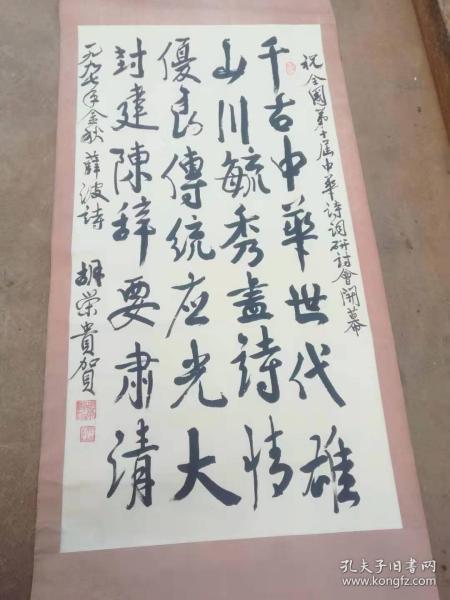 祝全國第十届中华詩詞研討會開幕
千古中華世代雄
山川毓秀盡詩情
優良傳統应光大
封建陳辞要肃清
一九九七年金秋 薛波詩
胡荣貴賀
孔夫子旧书网
www.kongfz.com